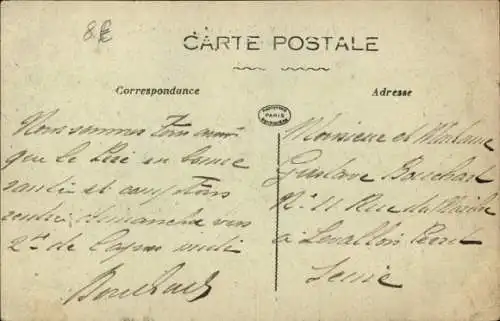 8€
CARTE POSTALE
Correspondance
PARIS
Adresse
Nous sommes tous
que le Père en bonne
santé et comptons
rendre dimanche vers
2h de l'après midi
Bouchard
Monsieur et Madame
Gustave Bouchard
N° 11 Rue du
à Levallois Perret
Seine